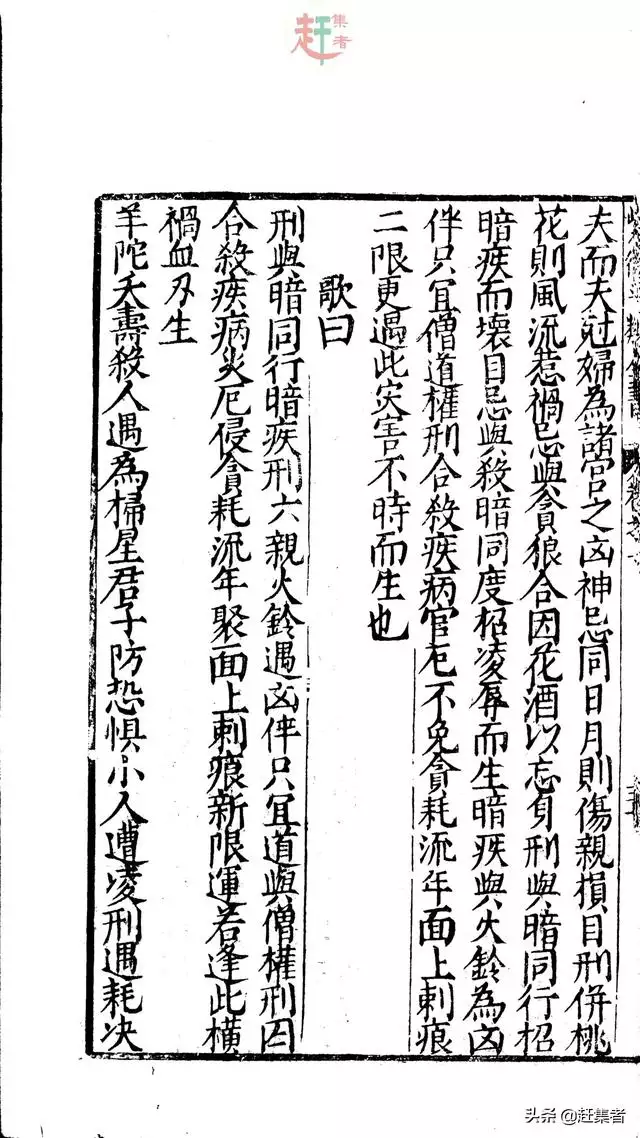 赶集者
夫而夫尅婦為諸宮之凶神忌同日月則傷親損目刑併桃
花則風流惹禍忌與貪狼合因花酒以忘身刑與暗同行招
暗疾而壞目忌與殺暗同度招凌辱而生暗疾與火鈴為凶
伴只宜僧道權刑合殺疾病官厄不免貪耗流年面上刺痕
二限更遇此災害不時而生也
歌曰
刑與暗同行暗疾刑六親火鈴遇凶伴只宜道與僧權刑囚
合殺疾病災厄侵貪耗流年聚面上刺痕新限運若逢此橫
禍血刃生
羊陀夭壽殺人遇為掃星君子防恐惧小人遭凌刑遇耗決
头条 @赶集者